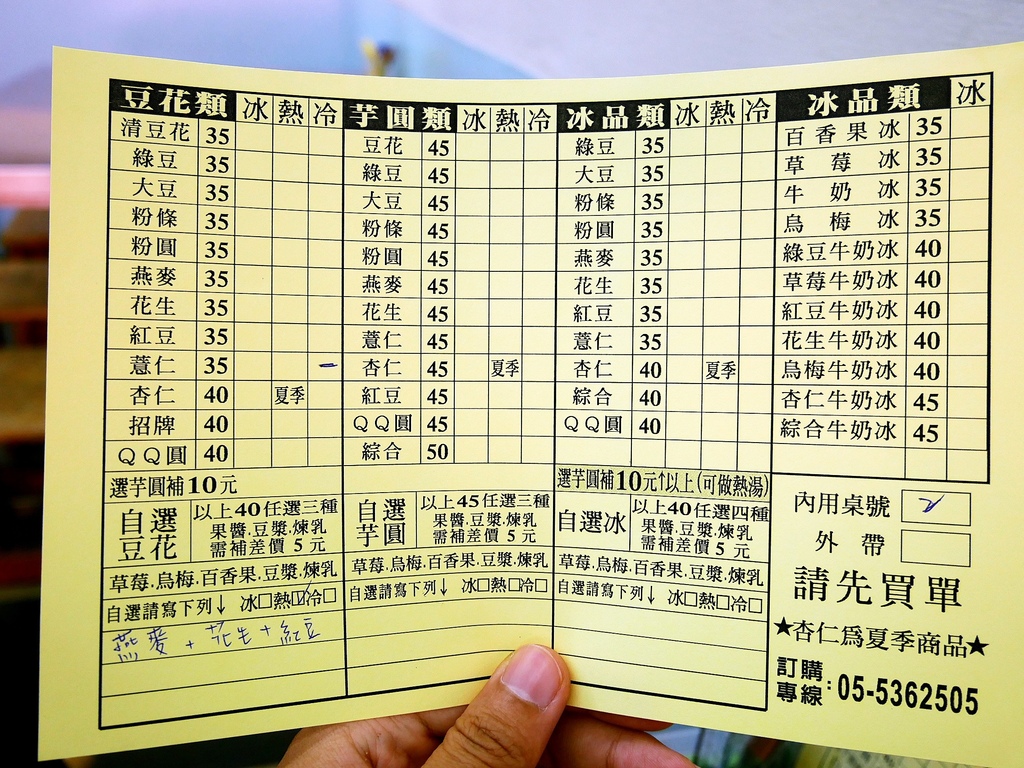 豆花類 冰 熱 冷
清豆花 35
綠豆 35
大豆 35
粉條 35
粉圓 35
燕麥 35
花生 35
紅豆 35
薏仁 35 一
杏仁 40 夏季
招牌 40
QQ圓 40
選芋圓補10元
自選豆花
以上40任選三種
果醬.豆漿.煉乳
需補差價 5 元
草莓.烏梅.百香果.豆漿.煉乳
自選請寫下列↓ 冰□熱☑冷□
燕麥+花生+紅豆
芋圓類 冰 熱 冷
豆花 45
綠豆 45
大豆 45
粉條 45
粉圓 45
燕麥 45
花生 45
薏仁 45
杏仁 45 夏季
紅豆 45
QQ圓 45
綜合 50
自選芋圓
以上45任選三種
果醬.豆漿.煉乳
需補差價 5 元
草莓.烏梅.百香果.豆漿.煉乳
自選請寫下列↓ 冰□熱□冷□
冰品類 冰 熱 冷
綠豆 35
大豆 35
粉條 35
粉圓 35
燕麥 35
花生 35
薏仁 35
杏仁 40 夏季
綜合 40
QQ圓 40
選芋圓補10元↑以上(可做熱湯)
自選冰
以上40任選四種
果醬.豆漿.煉乳
需補差價 5 元
草莓.烏梅.百香果.豆漿.煉乳
自選請寫下列↓ 冰□熱□冷□
冰品類 冰
百香果冰 35
草莓冰 35
牛奶冰 35
烏梅冰 35
綠豆牛奶冰 40
草莓牛奶冰 40
紅豆牛奶冰 40
花生牛奶冰 40
烏梅牛奶冰 40
杏仁牛奶冰 45
綜合牛奶冰 45
內用桌號 2
外帶
請先買單
★杏仁爲夏季商品★
訂購專線:05-5362505